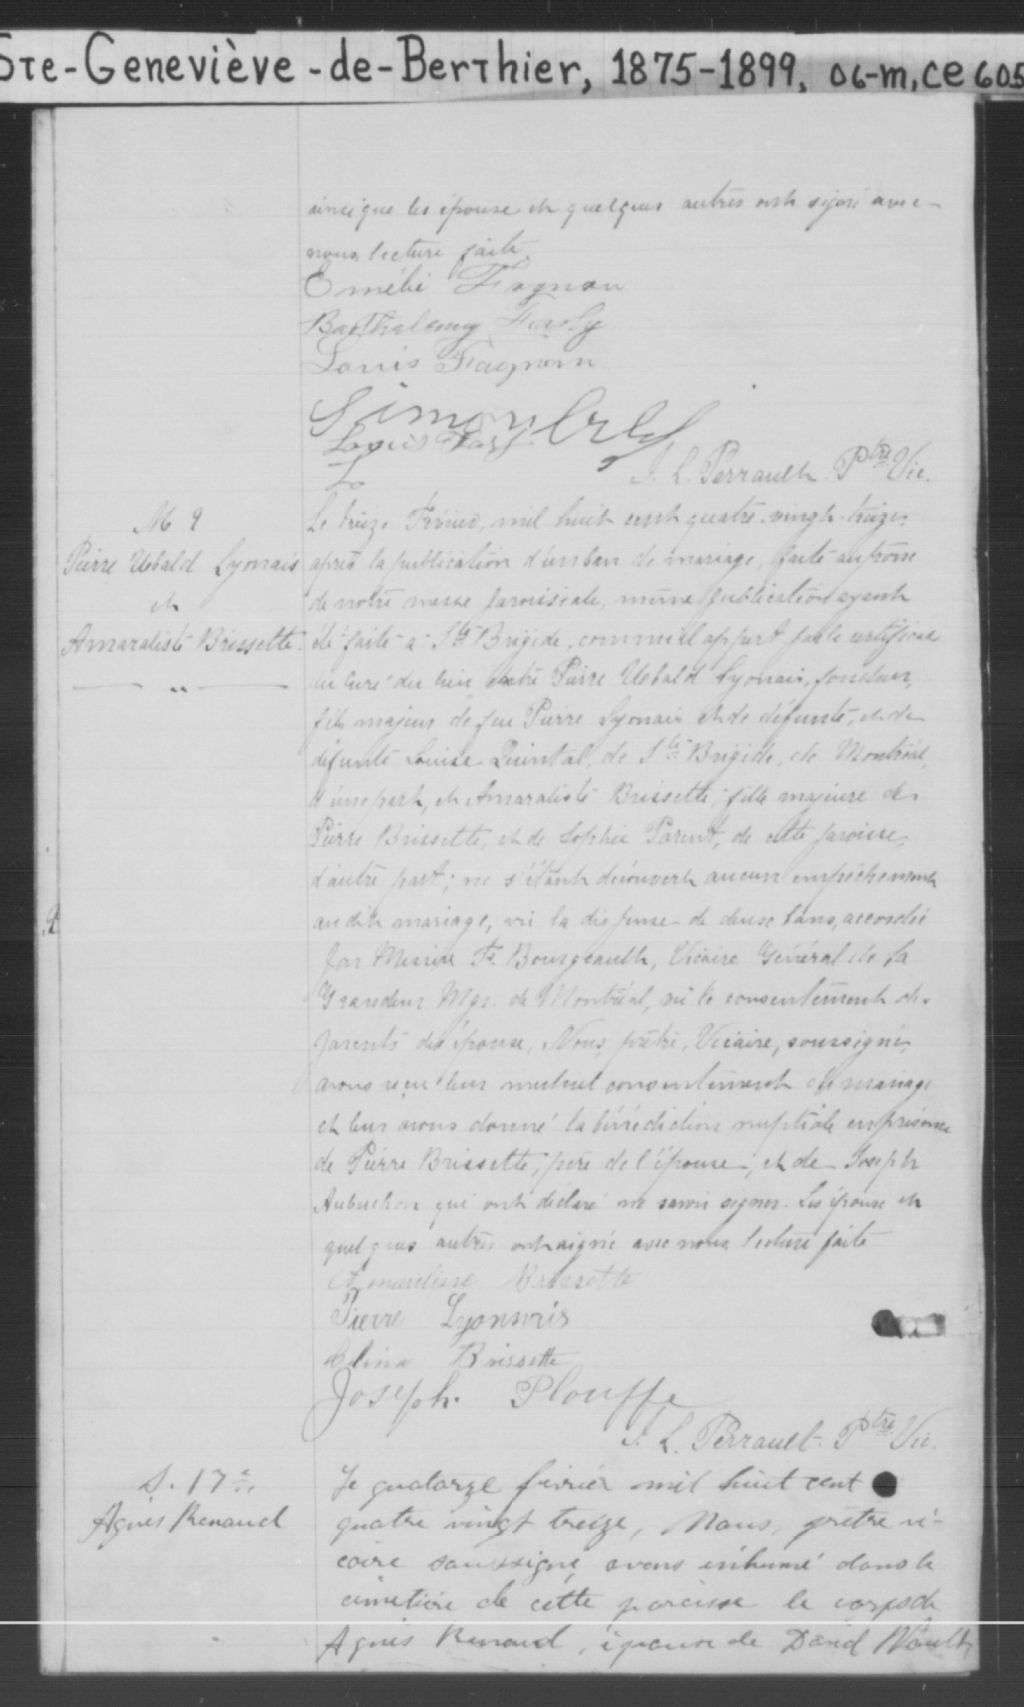 Ste-Geneviève-de-Berthier, 1875-1899, 06-M, CE605
ainsi que les épouse et quelques autres ont signé avec
nous lecture faite.
Emélie Fagnan
Barthelemy Farly
Louis Fagnan
Simon
Louis Farly
J. L. Perrault Ptre Vic.
M 9
Pierre Uebald Lyonais
et
Amaraliste Brissette.
Le treize Février, mil huit cent quatre-vingt-treize,
après la publication d'un ban de mariage, faite au prône
de notre messe paroissiale, même publication ayant
été faite à Ste Brigide, comme il appert par le certificat
du curé du lieu entre Pierre Uebald Lyonais, fondeur,
fils majeur de feu Pierre Lyonais et de défunte, et de
défunte Louise Quintal, de Ste Brigide, de Montréal,
d'une part, et Amaraliste Brissette, fille majeure de
Pierre Brissette, et de Sophie Parent, de cette paroisse,
d'autre part; ne s'étant découvert aucun empêchement
au dit mariage, vu la dispense de deux bans, accordée
par Messire F. Bourgeault, Vicaire Général de Sa
Grandeur Mgr. de Montréal, vu le consentement des
parents de l'épouse, Nous, prêtre, Vicaire, soussigné,
avons reçu leur mutuel consentement de mariage
et leur avons donné la bénédiction nuptiale en présence
de Pierre Brissette, père de l'épouse, et de Joseph
Aubuchon qui ont déclaré ne savoir signer. Les épouse et
quelques autres ont signé avec nous lecture faite
Brissette
Pierre Lyonnais
Brissette
Joseph. Plouffe
J. L. Perrault Ptre Vic.
S. 17e
Agnès Renaud
Le quatorze février mil huit cent
quatre vingt treize, Nous, prêtre vi-
caire soussigné avons inhumé dans le
cimetière de cette paroisse le corps de
Agnès Renaud, épouse de David